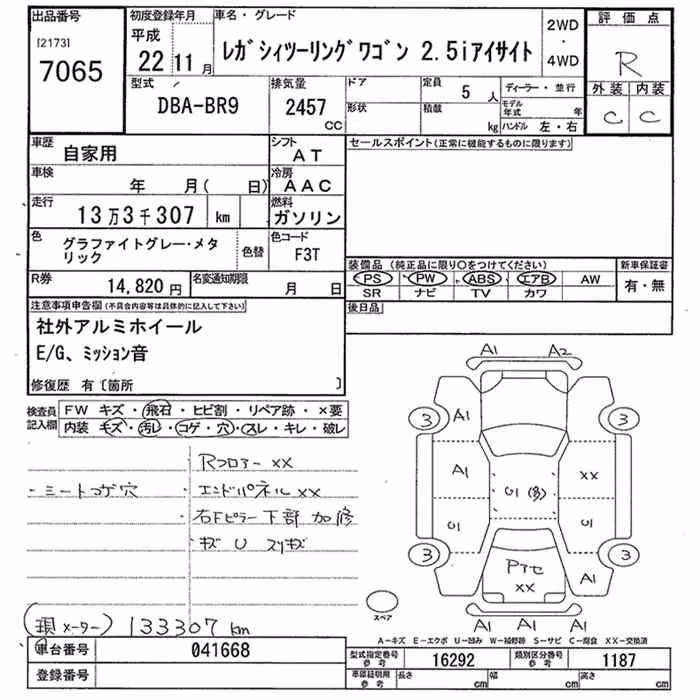 出品番号
[2173]
7065
初度登録年月
平成
22年11月
車名・グレード
レガシィツーリングワゴン 2.5iアイサイト
2WD
・
4WD
評価点
R
外装 内装
C C
型式
DBA-BR9
排気量
2457
CC
ドア
形状
定員
5人
積載
kg
ディーラー・並行
モデル年式 年
ハンドル 左・右
車歴
自家用
シフト
AT
車検
年 月( 日)
冷房
AAC
走行
13万3千307 km
燃料
ガソリン
色
グラファイトグレー・メタリック
色替
色コード
F3T
R券
14,820円
名変通知期限
月 日
セールスポイント(正常に機能するものに限ります)
装備品 (純正品に限り○をつけてください)
PS PW ABS エアB AW
SR ナビ TV カワ
新車保証書
有・無
後日品
注意事項申告欄(不具合内容等は具体的に記入して下さい)
社外アルミホイール
E/G、ミッション音
修復歴 有〔箇所 〕
検査員記入欄
FW キズ・飛石・ヒビ割・リペア跡・×要
内装 キズ・汚レ・コゲ・穴・スレ・キレ・破レ
Rフロアー XX
・シートコゲ穴
・エンドパネル XX
・右Fピラー下部 加修
・キズ U スリキズ
(現メーター) 133307 km
A1 A2
3 A1 3
A1 U1(多) XX
U1 U1
3 3
Pアセ
XX A1
A1 A1 A1
スペア
A-キズ E-エクボ U-凹み W-補修跡 S-サビ C-腐食 XX-交換済
車台番号
041668
登録番号
型式指定番号
参考
16292
類別区分番号
参考
1187
車車証明用
参考
長さ cm
幅 cm
高さ cm